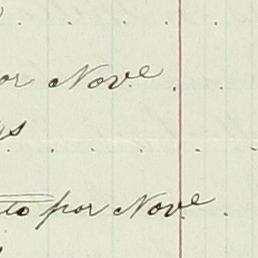 or Nov.e
gs
to por Nov.e